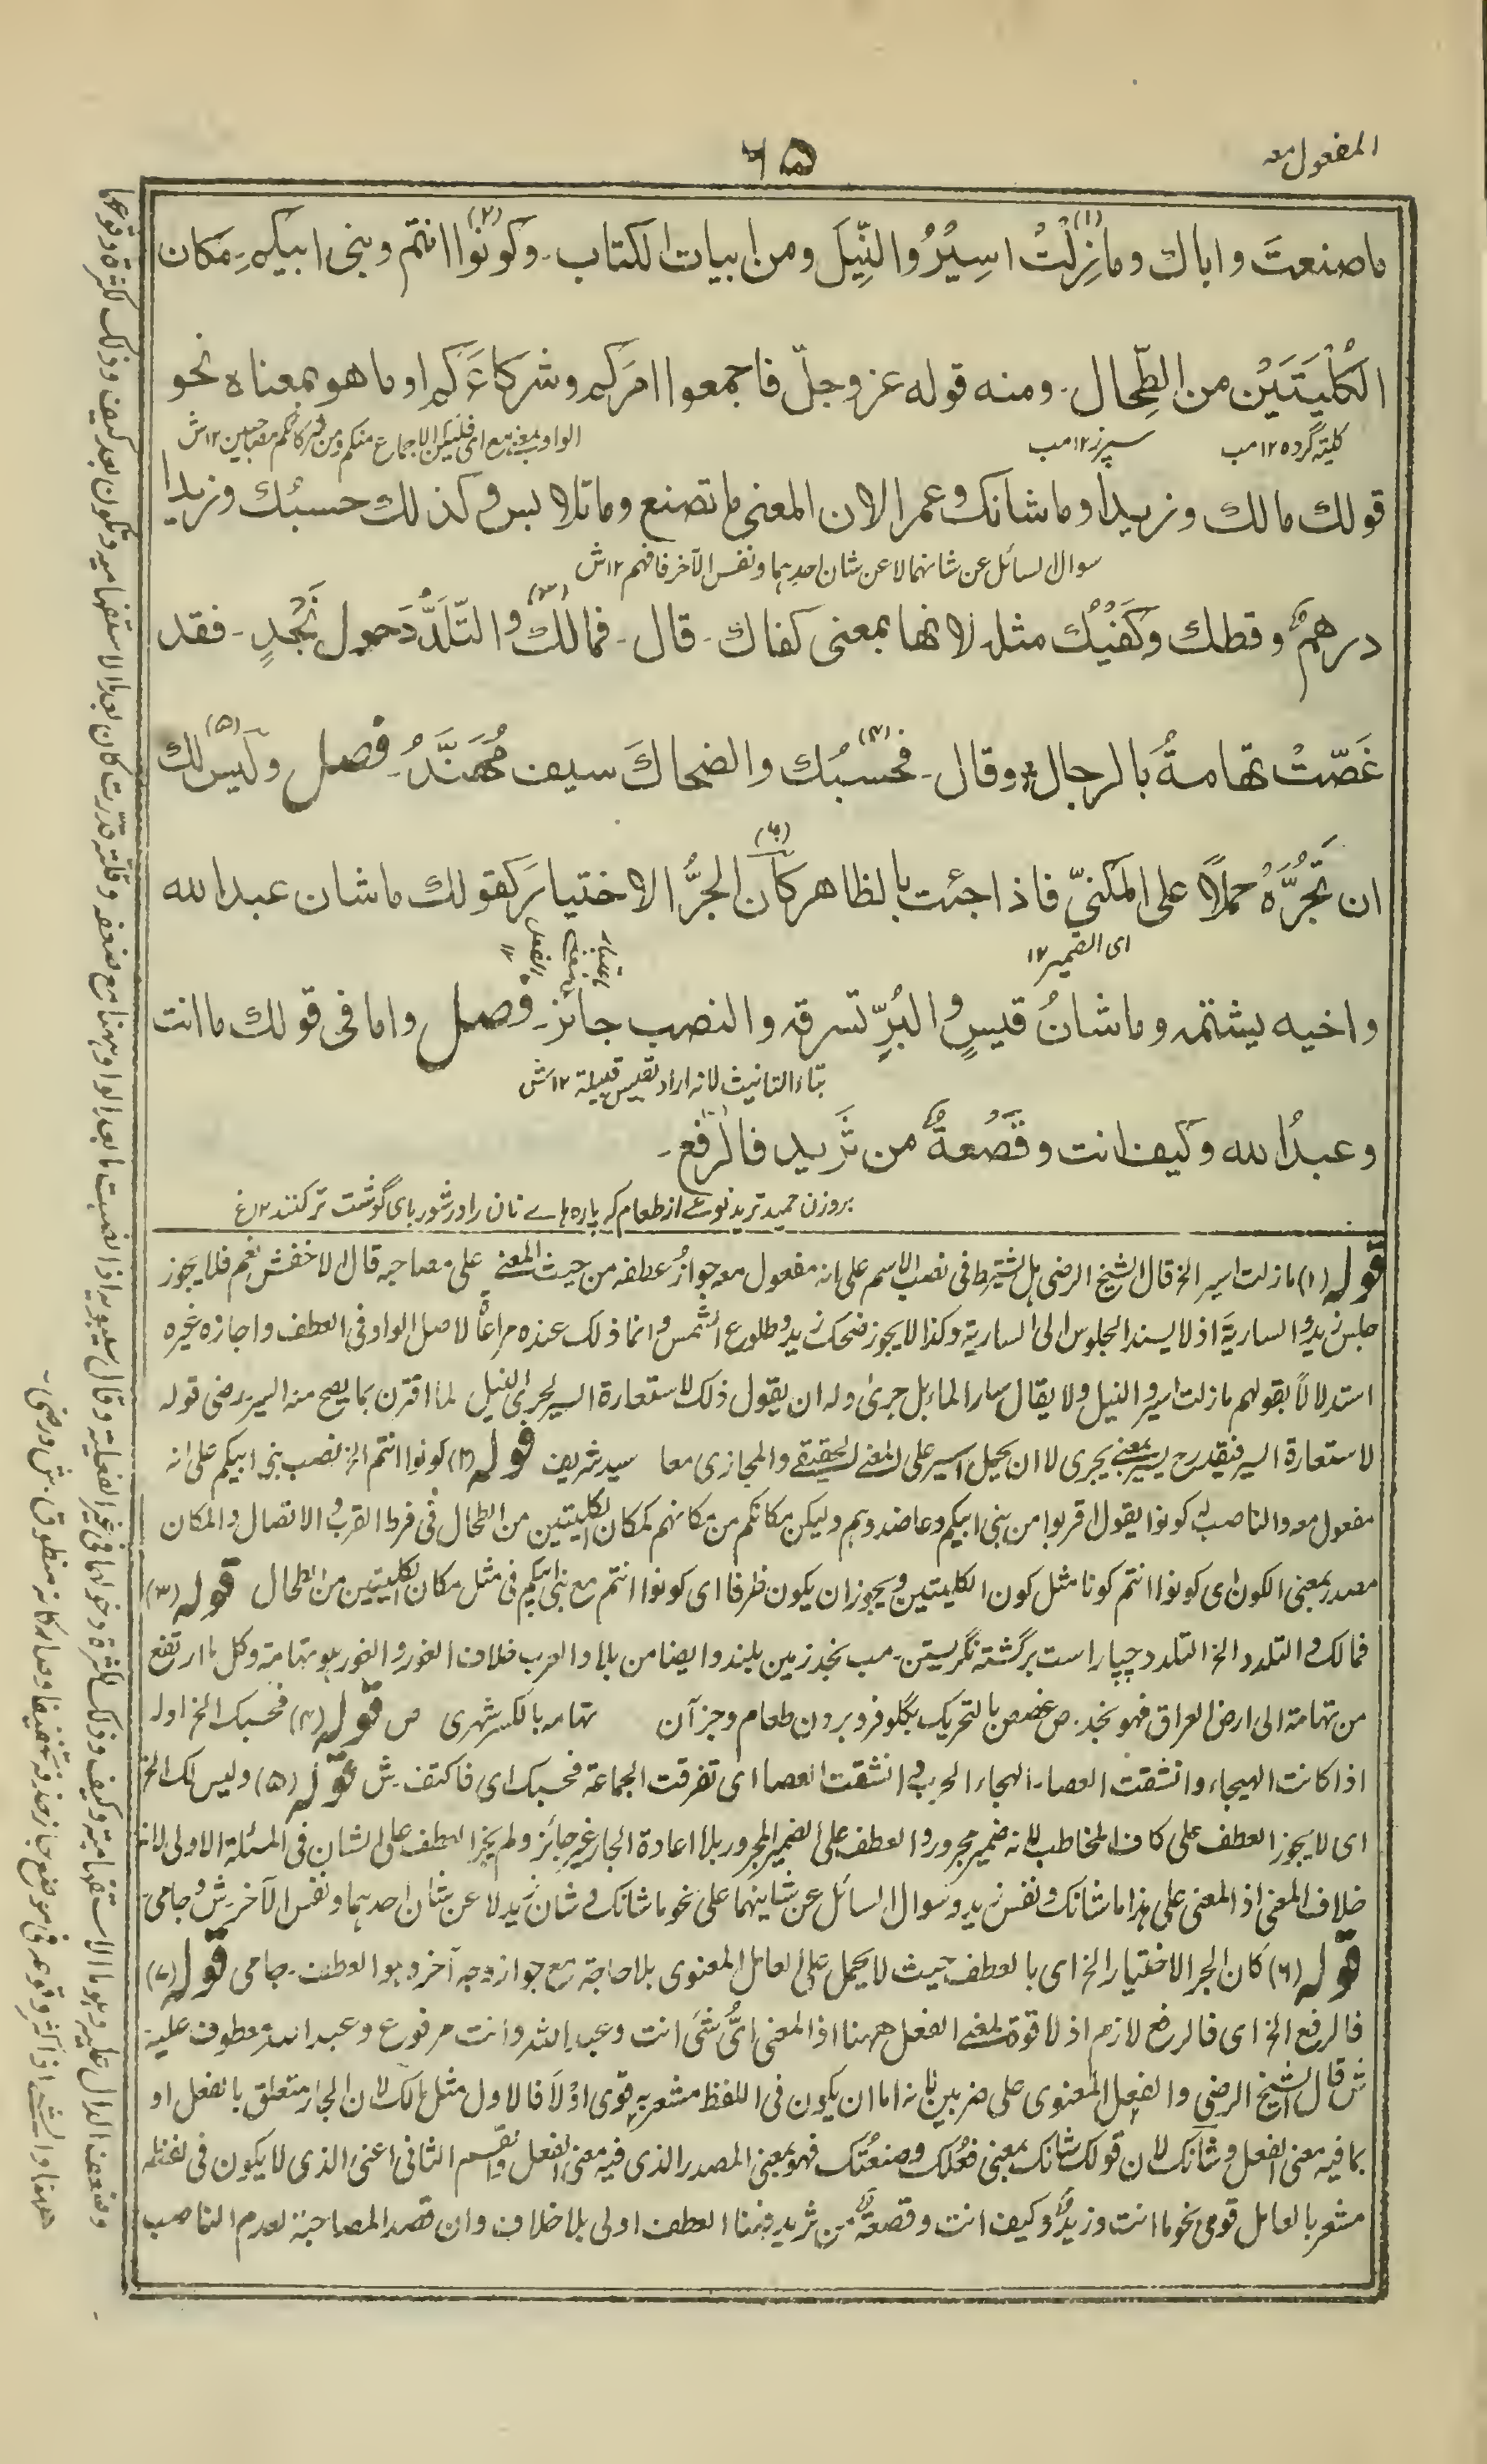 المفعول معه
٦٥
ما صنعتَ واباك وما زِلْتُ (١) اسِيْرُ والنِّيلَ ومن ابيات الكتاب ۔ وكونوا (٢) انتم وبنى ابيكم ۔ مكان
الكُلْيَتَيْنِ من الطِّحال ۔ ومنه قوله عز وجلّ فاجمعوا امرَكم وشركاءَكم او ما هو بمعناه نحو
كليته گرده ١٢ مب
سپرز ١٢ مب
الواو بمعنى مع اى فليكن الاجماع منكم ومن شركائكم مصاحبين ١٢ ش
قولك مالك وزيدا وما شانك وعمرا لان المعنى ما تصنع وما تلابس وكذلك حسبُك وزيدا
سوال السائل عن شانهما لا عن شان احدهما ونفس الآخر فافهم ١٢ ش
درهمٌ وقطك وكَفْيُك مثله لانها بمعنى كفاك ۔ قال ۔ فمالك (٣) والتّلدُّدَ حول نَجْدٍ ۔ فقد
غَصّتْ تهامةُ بالرجال ۔ وقال ۔ فحسبُك (٤) والضحاكَ سيف مُهَنَّدُ ۔ فصل وليس لك (٥)
ان تَجُرَّهُ حملًا على المكنىّ فاذا جئت بالظاهر كان (٦) الجرُّ الاختيارَ كقولك ما شان عبد الله
اى الضمير ١٢
واخيه يشتمه وما شانُ قيسٍ والبُرِّ تسرقه والنصب جائز ۔ فصل واما فى قولك ما انت
بتاء التانيث لانه اراد بقيس قبيلة ١٢ ش
وعبدُ الله وكيف انت وقَصْعةٌ من ثَريد فالرفع ۔
بروزن حميد تريد نوعے از طعام كه پاره هاے نان را در شورباى گوشت تر كنند ١٢ غ
قوله (١) ما زلت اسير الخ قال الشيخ الرضى هل يشترط فى نصب الاسم على انه مفعول معه جوازُ عطفه من حيث المعنى على مصاحبه قال الاخفش نعم فلا يجوز
جلس زيد والساريةَ اذ لا يسند الجلوس الى السارية وكذا لا يجوز ضحك زيد وطلوع الشمس وانما ذلك عنده مراعاة لاصل الواو فى العطف واجازه غيره
استدلالًا بقولهم ما زلت اسير والنيل ولا يقال سار الماء بل جرى وله ان يقول ذلك لاستعارة السير لجرى النيل لما اقترن بما يصح منه السير رضى قوله
لاستعارة السير فيقدر ح يسير بمعنى يجرى لا ان يحمل اسير على المعنى الحقيقى والمجازى معا سيد شريف قوله (٢) كونوا انتم الخ نصب بنى ابيكم على انه
مفعول معه والناصب له كونوا يقول اقربوا من بنى ابيكم وعاضدوهم وليكن مكانكم من مكانهم كمكان الكليتين من الطحال فى فرط القرب والاتصال والمكان
مصدر بمعنى الكون اى كونوا انتم كونا مثل كون الكليتين ويجوز ان يكون ظرفا اى كونوا انتم مع بنى ابيكم فى مثل مكان الكليتين من الطحال قوله (٣)
فمالك والتلدد الخ التلدد چپا راست برگشته نگريستن ۔ مب نجد زمين بلند وايضا من بلاد العرب خلاف الغور والغور هو تهامة وكل ما ارتفع
من تهامة الى ارض العراق فهو نجد ۔ ص غصص بالتحريك بگلو فرو برون طعام وجز آن تهامه بالكسر شهرى ص قوله (٤) فحسبك الخ اوله
اذا كانت الهيجاء وانشقت العصا ۔ الهيجاء الحرب وانشقت العصا اى تفرقت الجماعة فحسبك اى فاكتف ۔ ش قوله (٥) وليس لك الخ
اى لا يجوز العطف على كاف المخاطب لانه ضمير مجرور والعطف على الضمير المجرور بلا اعادة الجار غير جائز ولم يجز العطف على الشان فى المسئلة الاولى لانه
خلاف المعنى اذ المعنى على هذا ما شانك ونفس زيد وسوال السائل عن شانيهما على نحو ما شانك وشان زيد لا عن شان احدهما ونفس الآخر ۔ ش وجامى
قوله (٦) كان الجر الاختيار الخ اى بالعطف حيث لا يحمل على العامل المعنوى بلا حاجة مع جواز وجه آخر وهو العطف ۔ جامى قوله (٧)
فالرفع الخ اى فالرفع لازم اذ لا قوة لمعنى الفعل ههنا اذ المعنى اىُّ شئ انت وعبد الله وانت مرفوع وعبد الله معطوف عليه
ش قال الشيخ الرضى والفعل المعنوى على ضربين لانه اما ان يكون فى اللفظ مشعر به قوى اوْ لَا فالاول مثل مالك لان الجار متعلق بالفعل او
بما فيه معنى الفعل وشانك لان قولك شانك بمعنى فعلك وصنعتك فهو بمعنى المصدر الذى فيه معنى الفعل والقسم الثانى اعنى الذى لا يكون فى لفظه
مشعر بالعامل قوى نحو ما انت وزيدٌ وكيف انت وقصعةٌ من ثريد فهنا العطف اولى بلا خلاف وان قصد المصاحبة لعدم الناصب